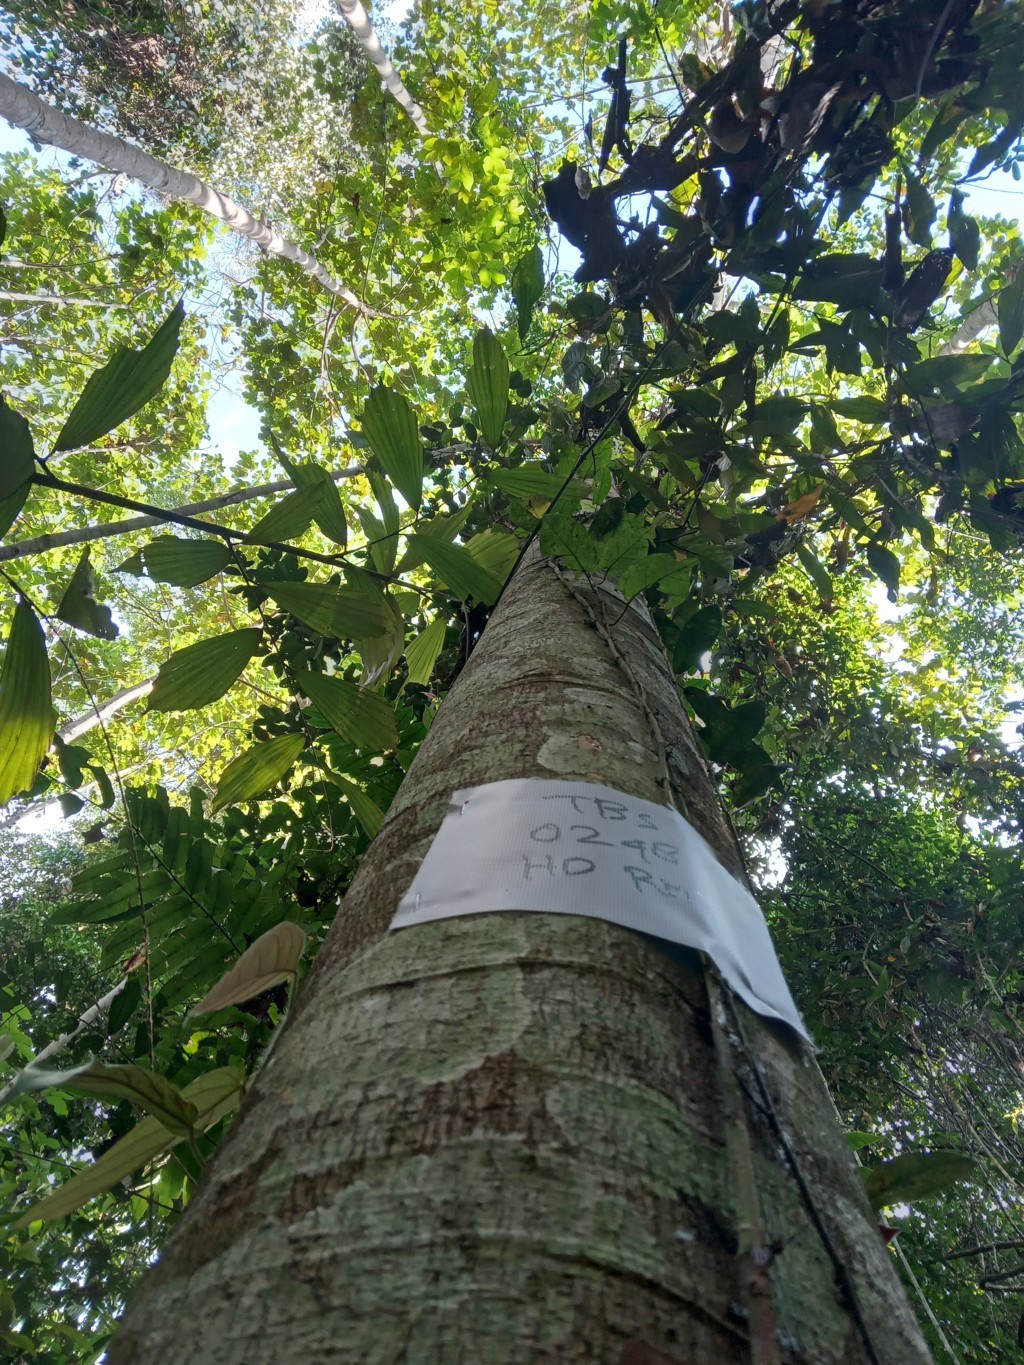 TBS
0248
HO RM